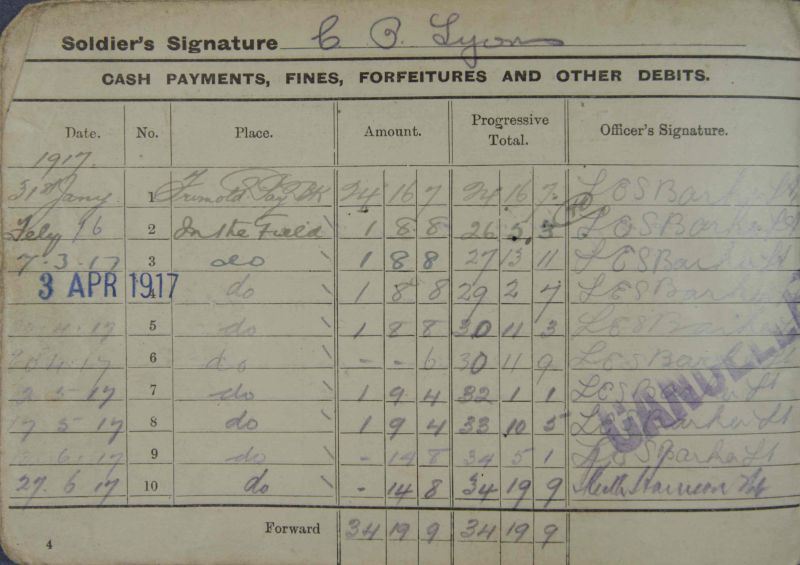 Soldier's Signature C P. Lyons
CASH PAYMENTS, FINES, FORFEITURES AND OTHER DEBITS.
Date. No. Place. Amount. Progressive Total. Officer's Signature.
1917.
31st Jany 1 Pay Bk 24 16 7 24 16 7 L E S Barker Lt
Feby 16 2 In the Field 1 8 8 26 5 3 L E S Barker Lt
7.3.17 3 do 1 8 8 27 13 11 L E S Barker Lt
3 APR 1917 4 do 1 8 8 29 2 7 L E S Barker Lt
4.17 5 do 1 8 8 30 11 3 L E S Barker Lt
4.17 6 do - - 6 30 11 9 L E S Barker Lt
5.17 7 do 1 9 4 32 1 1 L E S Barker Lt
17 5 17 8 do 1 9 4 33 10 5 L E S Barker Lt
6.17 9 do - 14 8 34 5 1 L E S Barker Lt
27.6.17 10 do - 14 8 34 19 9 Harrison
CANCELLED
Forward 34 19 9 34 19 9
4